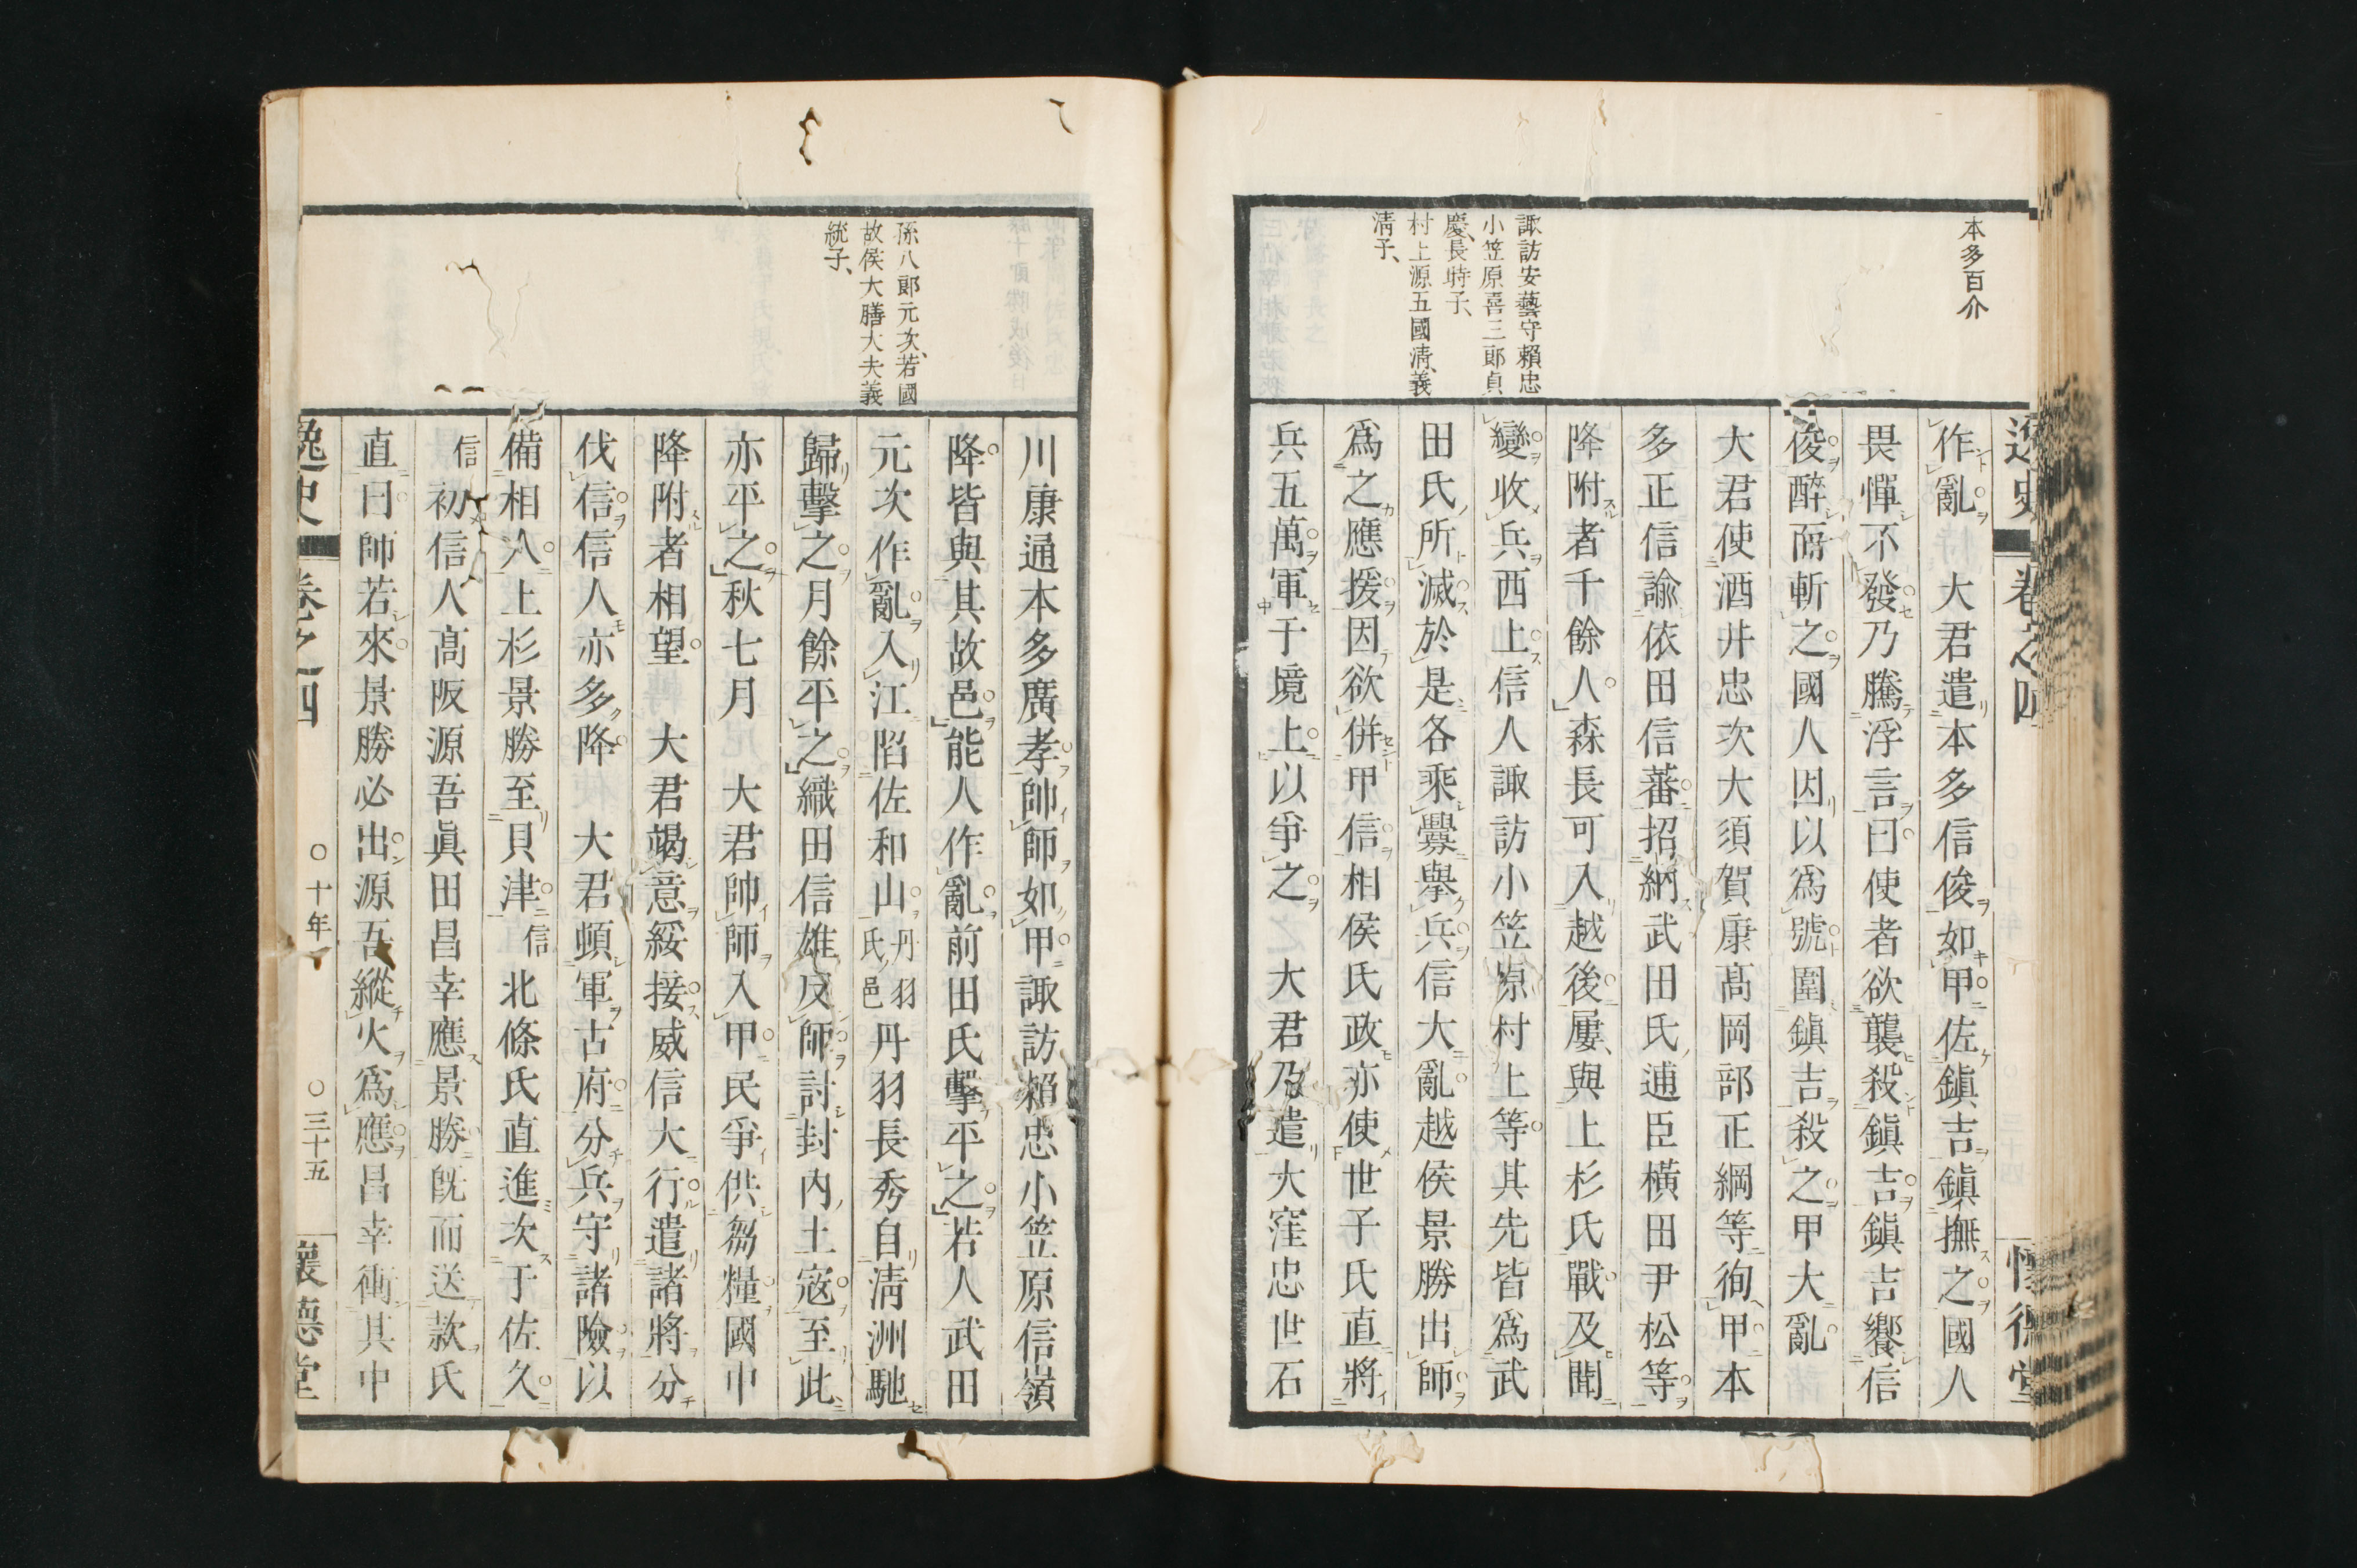 本多百介
諏訪安藝守賴忠
小笠原喜三郎貞
慶、長時子、
村上源五國淸、義
淸子、
作亂　大君遣本多信俊如甲佐鎭吉鎭撫之國人
畏憚不發乃騰浮言曰使者欲襲殺鎭吉鎭吉饗信
俊醉而斬之國人因以爲號圍鎭吉殺之甲大亂
大君使酒井忠次大須賀康髙岡部正綱等徇甲本
多正信諭依田信蕃招納武田氏逋臣橫田尹松等
降附者千餘人森長可入越後屢與上杉氏戰及聞
變收兵西上信人諏訪小笠原村上等其先皆爲武
田氏所滅於是各乘釁擧兵信大亂越侯景勝出師
爲之應援因欲併甲信相侯氏政亦使世子氏直將
兵五萬軍于境上以爭之　大君乃遣大窪忠世石
孫八郞元次、若國
故侯大膳大夫義
統子、
川康通本多廣孝帥師如甲諏訪賴忠小笠原信嶺
降皆與其故邑能人作亂前田氏擊平之若人武田
元次作亂入江陷佐和山丹羽氏邑丹羽長秀自淸洲馳
歸擊之月餘平之織田信雄反師討封內土寇至此
亦平之秋七月　大君帥師入甲民爭供芻糧國中
降附者相望　大君竭意綏接威信大行遣諸將分
伐信信人亦多降　大君頓軍古府分兵守諸險以
備相入上杉景勝至貝津信北條氏直進次于佐久
信初信人髙阪源吾眞田昌幸應景勝旣而送款氏
直曰師若來景勝必出源吾縱火爲應昌幸衝其中
逸史　卷之四　○十年　○三十五　懷德堂